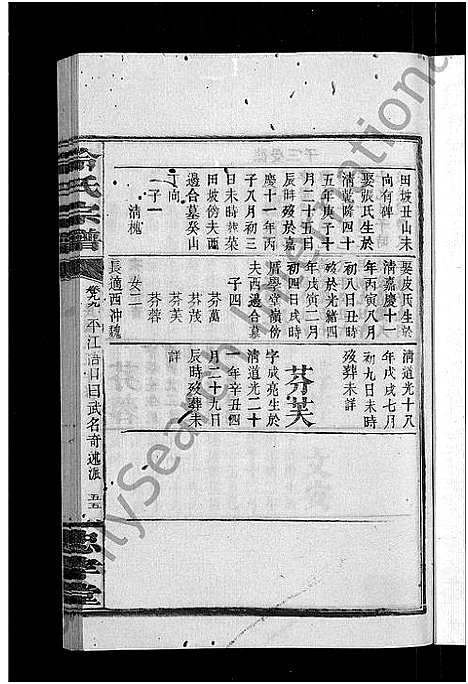 田坡丑山未
向有碑
娶張氏生於
清乾隆四十
五年庚子十
月二十五日
辰時歿於嘉
慶十一年丙
子八月初三
日未時葬菜
田坡傍夫西
邊合墓癸山
丁向
子一
清槐
娶皮氏生於
清嘉慶十一
年丙寅八月
初八日丑時
歿於光緒四
年戊寅二月
初四日戌時
厝學堂嶺傍
夫西邊合墓
子四
芬萬
芬茂
芬芙
芬蓉
女二
長適西沖魏
清道光十八
年戊戌七月
初九日未時
歿葬未詳
芬芙
字成亮生於
清道光二十
一年辛丑四
月二十九日
辰時歿葬未
詳
氏宗譜
卷九
平江浯口日武名奇述派
五五
忠孝堂
MySearch International